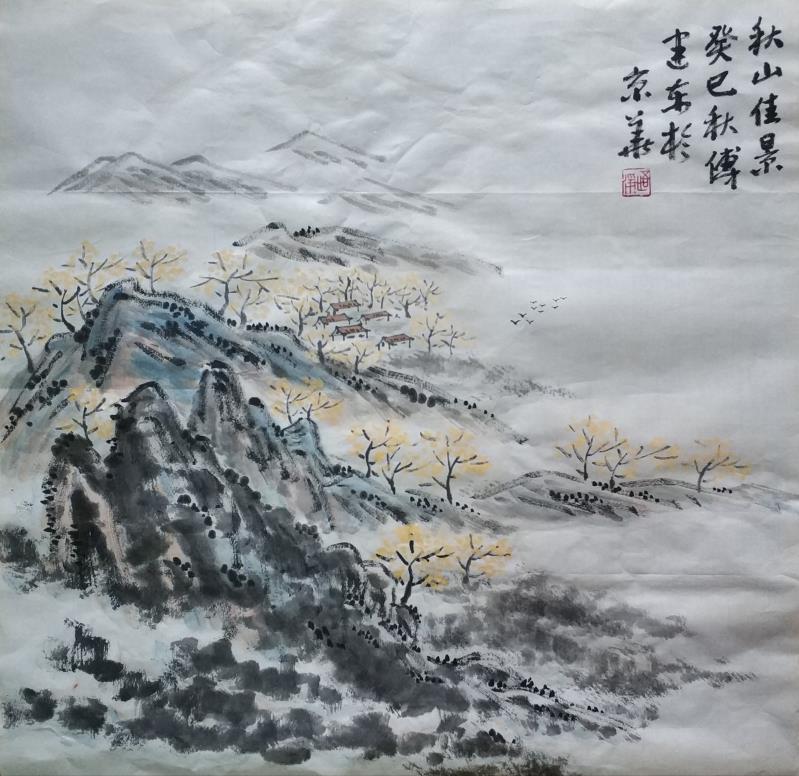 秋山佳景
癸巳秋傅
建东於
京华